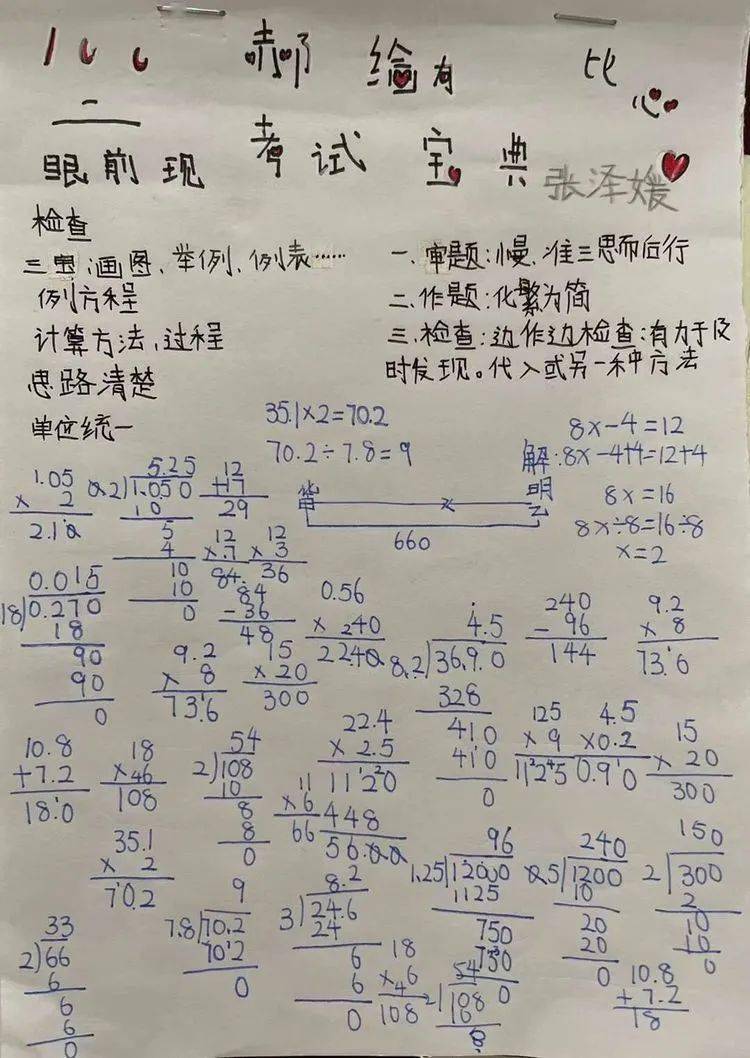 100 郝 绘有 比心
二
眼前现 考试宝典 张泽媛
检查
三思:画图、举例、例表……
例方程
计算方法、过程
思路清楚
单位统一
一、审题:慢、准三思而后行
二、作题:化繁为简
三、检查:边作边检查:有力于及
时发现。代入或另一种方法
35.1×2=70.2
70.2÷7.8=9
8x-4=12
解:8x-4+4=12+4
8x=16
8x÷8=16÷8
x=2
x
明
660
1.05
× 2
2.10
5.25
0.2)1.050
10
5
4
10
10
0
12
+17
29
12
×7
84
12
× 3
36
84
-36
48
0.015
18)0.270
18
90
90
0
9.2
× 8
73.6
15
× 20
300
0.56
× 240
2240
4.5
8.2)36.90
328
410
410
0
240
- 96
144
9.2
× 8
73.6
10.8
+7.2
18.0
18
×46
108
54
2)108
10
8
8
0
11
×6
66
22.4
× 2.5
1120
448
56.00
125
× 9
1125
4.5
×0.2
0.90
15
× 20
300
35.1
× 2
70.2
33
2)66
6
6
6
0
9
7.8)70.2
702
0
8.2
3)24.6
24
6
6
0
18
×6
108
96
1.25)12000
1125
750
750
0
54
2)108
10
8
240
0.5)1200
10
20
20
0
150
2)300
2
10
10
0
10.8
+7.2
18